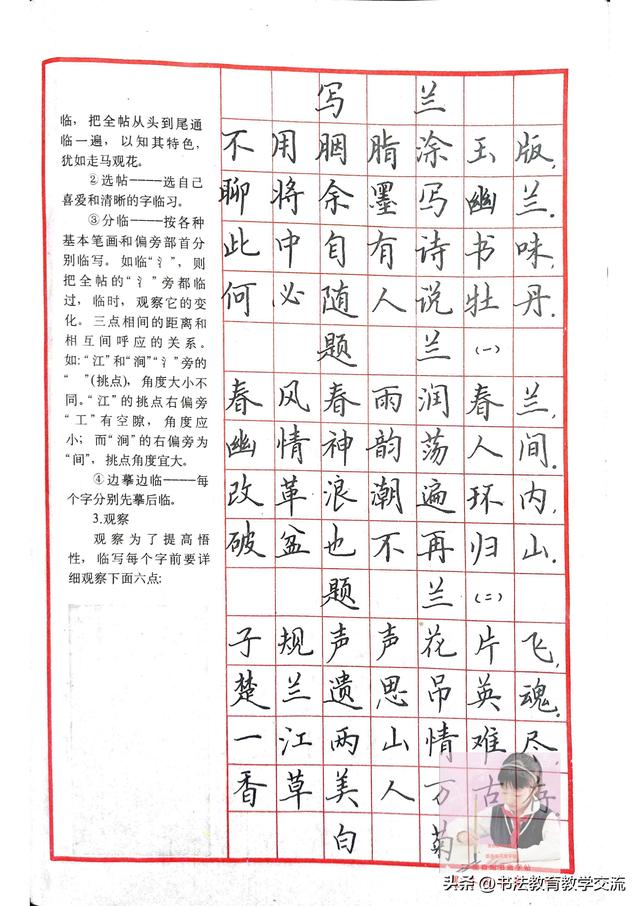 临，把全帖从头到尾通
临一遍，以知其特色，
犹如走马观花。
②选帖----选自己
喜爱和清晰的字临习。
③分临----按各种
基本笔画和偏旁部首分
别临写。如临“氵”，则
把全帖的“氵”旁都临
过，临时，观察它的变
化。三点相间的距离和
相互间呼应的关系。
如:“江”和“涧”“氵”旁的
“ ”(挑点)，角度大小不
同。“江”的挑点右偏旁
“工”有空隙，角度应
小；而“涧”的右偏旁为
“间”，挑点角度宜大。
④边摹边临----每
个字分别先摹后临。
3.观察
观察为了提高悟
性，临写每个字前要详
细观察下面六点:
写兰
不用胭脂涂玉版，
聊将余墨写幽兰．
此中自有诗书味，
何必随人说牡丹．
题兰(一)
春风春雨润春兰，
幽情神韵荡人间．
改革浪潮遍环内，
破盆也不再归山．
题兰(二)
子规声声花片飞，
楚兰遗思吊英魂．
一江两山情难尽，
香草美人万古存．
白菊
头条 @书法教育教学交流